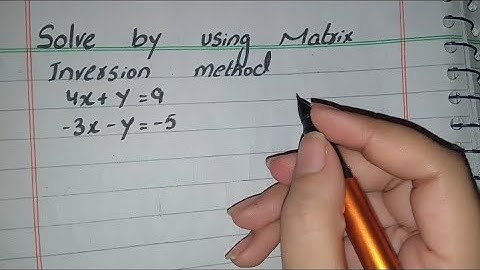 Solve by using Matrix
Inversion method
4x + y = 9
-3x - y = -5